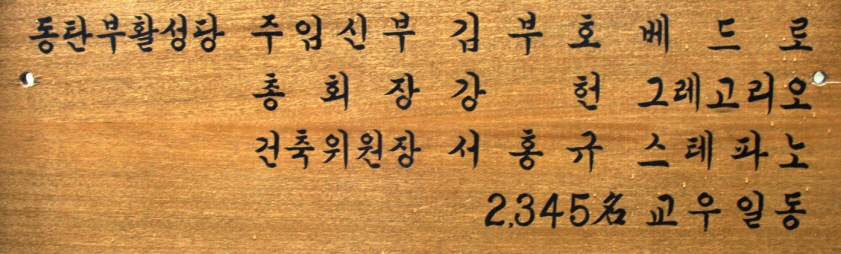 동탄부활성당 주임신부 김부호 베드로
총회장 강 헌 그레고리오
건축위원장 서홍규 스테파노
2,345名 교우일동